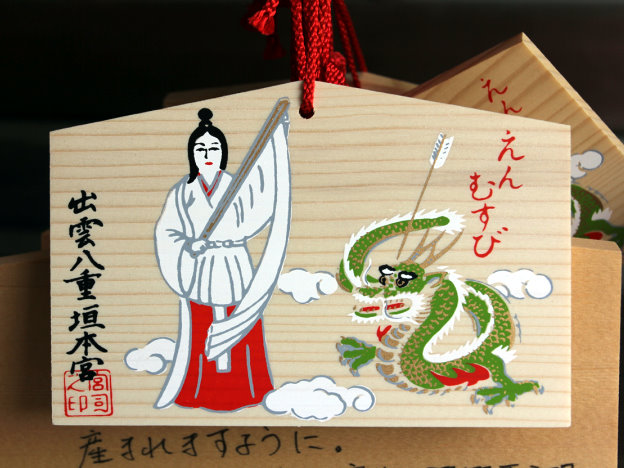 えん
えん
むすび
出雲八重垣本宮
宮司之印
産まれますように。